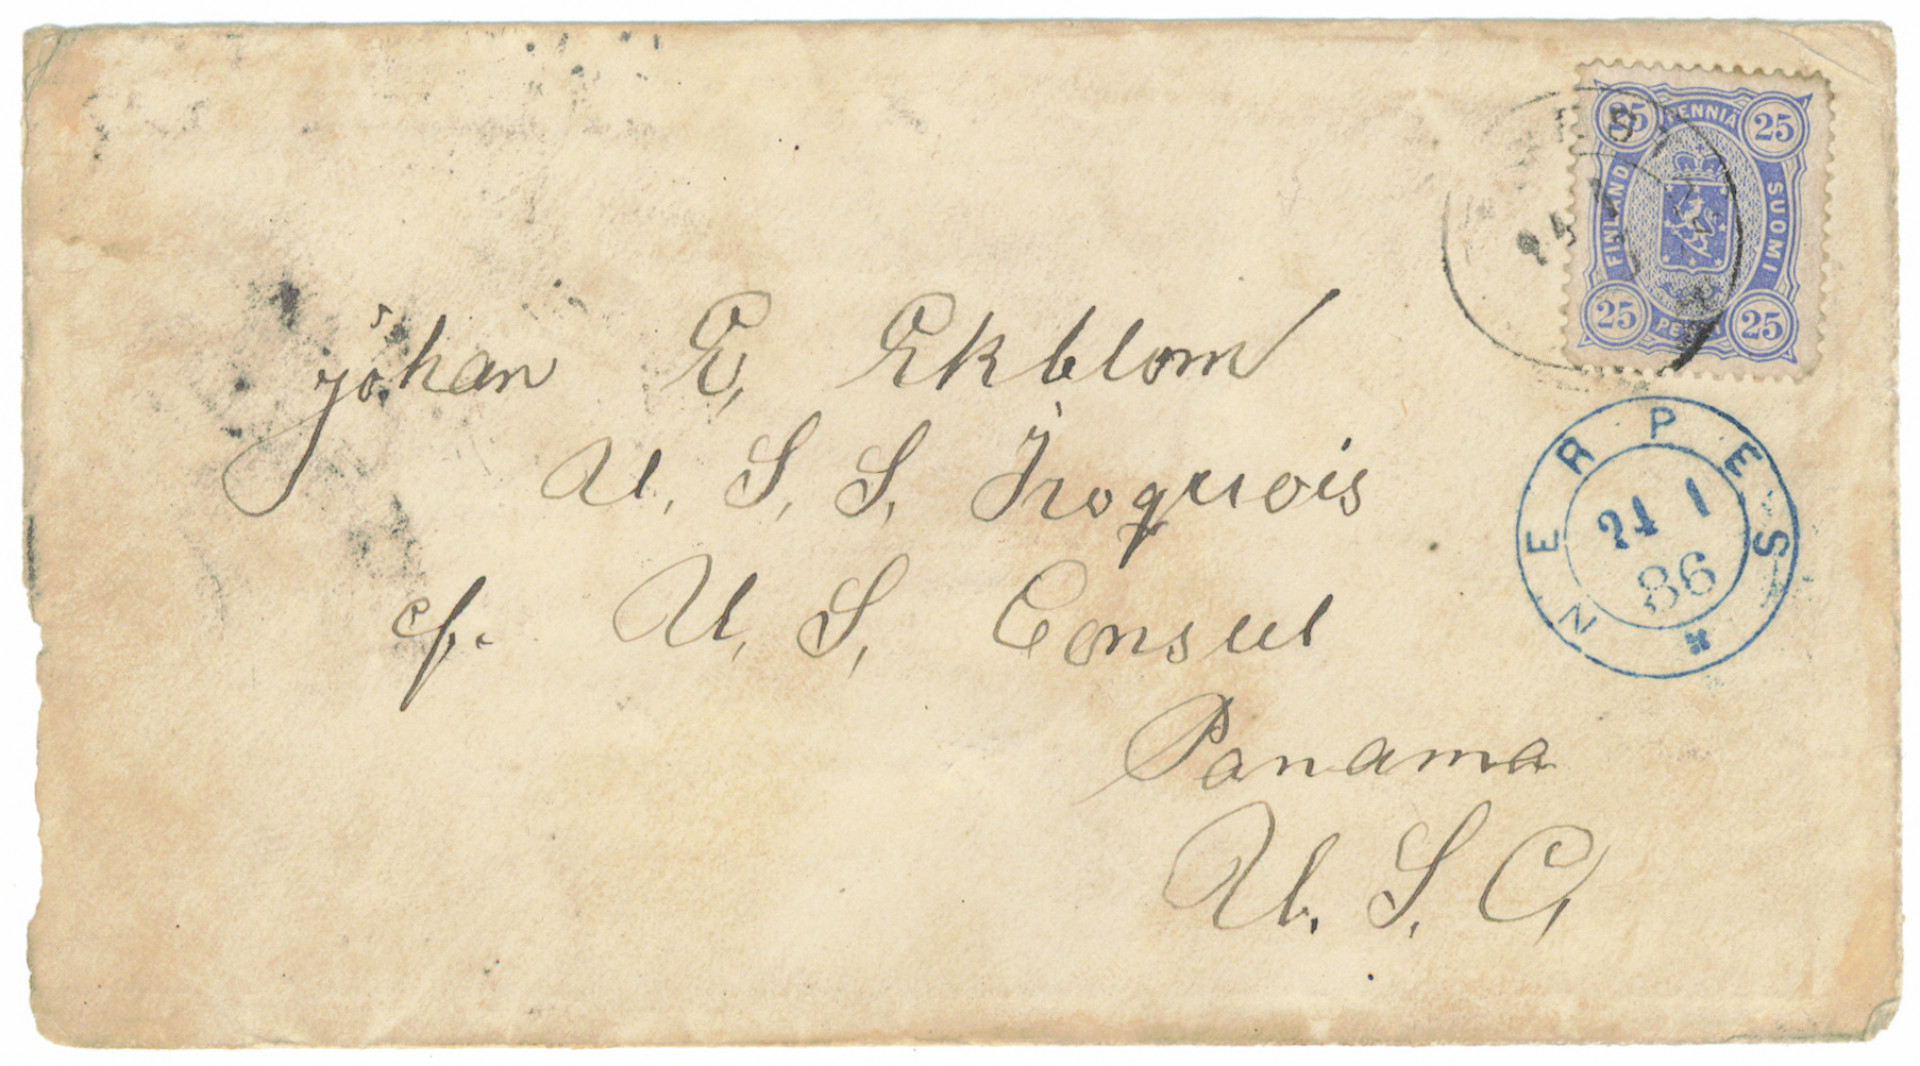 25 PENNIA 25
FINLAND
SUOMI
25 25
Johan E, Ekblom
U. S, S, Iroquois
c/. U, S, Consul
Panama
U. S, C,
NERPES
24 1
86